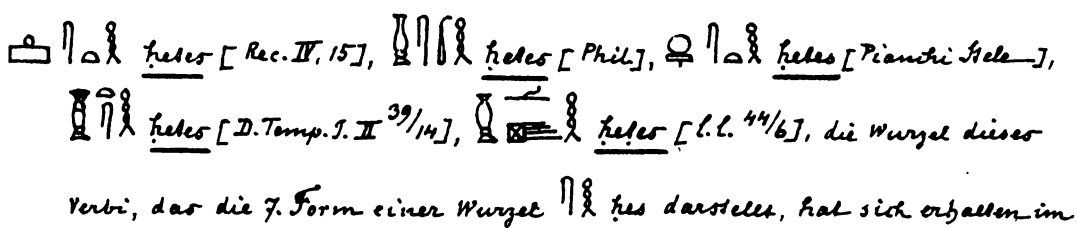 ḥetes [Rec. IV, 15], ḥetes [Phil.], ḥetes [Pianchi Stele],
ḥetes [D. Temp. I. II 39/14], ḥetes [l.l. 44/6], die Wurzel dieses
Verbi, das die 7. Form einer Wurzel ḥes darstellt, hat sich erhalten im